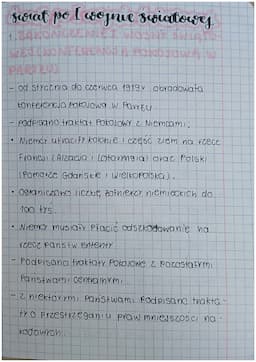 świat po I wojnie światowej
- od stycznia do czerwca 1919r. obradowała
konferencja pokojowa w Paryżu
- podpisano traktat pokojowy z Niemcami:
• Niemcy utraciły kolonie i część ziem na rzecz
Francji (Alzacja i Lotaryngia) oraz Polski
(Pomorze Gdańskie i Wielkopolska).
• ograniczono liczbę żołnierzy niemieckich do
100 tys.
• Niemcy musiały płacić odszkodowanie na
rzecz państw ententy
- Podpisano traktaty pokojowe z pozostałymi
państwami centralnymi
- z niektórymi państwami podpisano trakta-
ty o przestrzeganiu praw mniejszości na-
rodowych.